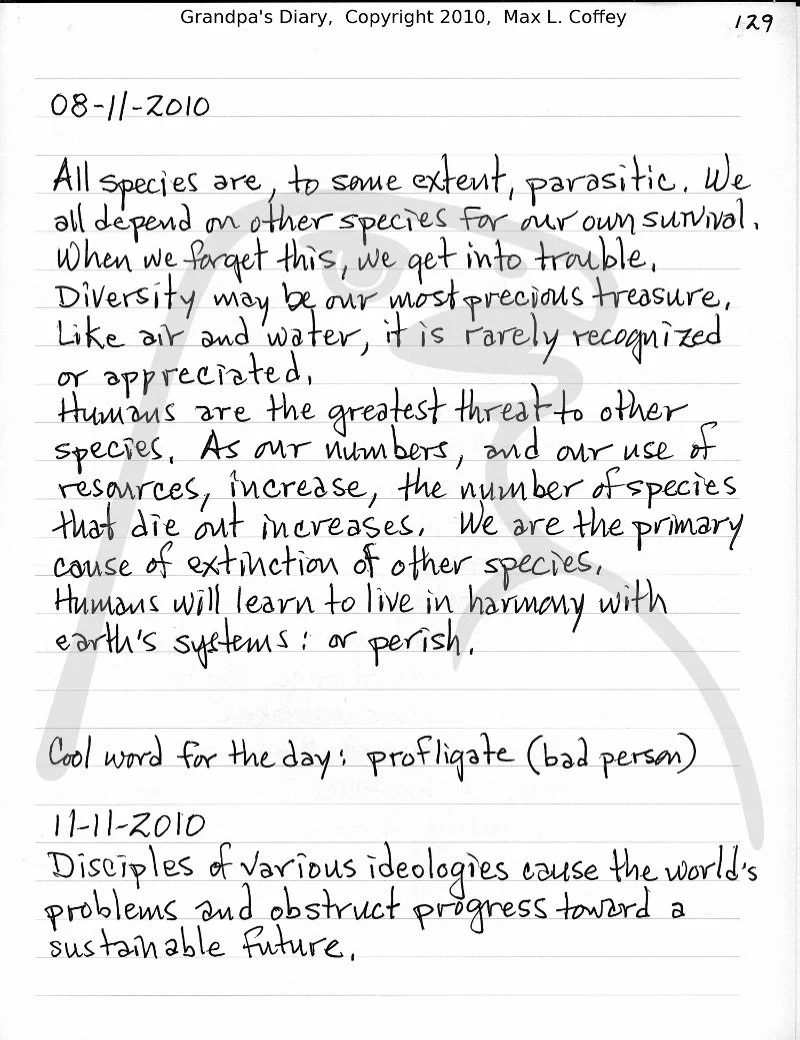 Grandpa's Diary, Copyright 2010, Max L. Coffey
129
08-11-2010
All species are, to some extent, parasitic. We
all depend on other species for our own survival.
When we forget this, we get into trouble.
Diversity may be our most precious treasure.
Like air and water, it is rarely recognized
or appreciated.
Humans are the greatest threat to other
species. As our numbers, and our use of
resources, increase, the number of species
that die out increases. We are the primary
cause of extinction of other species.
Humans will learn to live in harmony with
earth's systems: or perish.
Cool word for the day: profligate (bad person)
11-11-2010
Disciples of various ideologies cause the world's
problems and obstruct progress toward a
sustainable future.